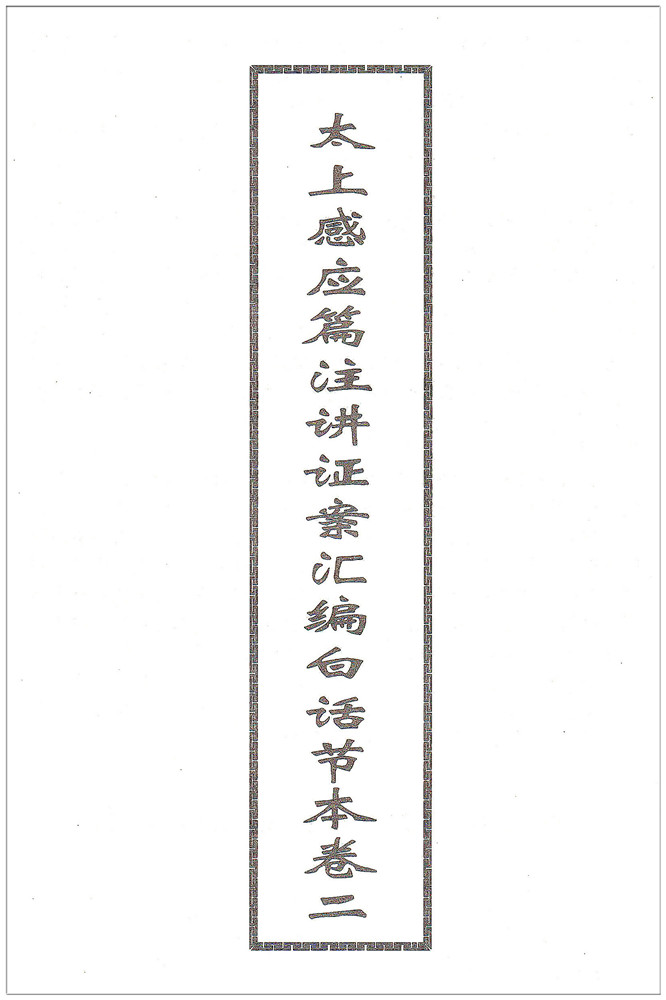 太上感应篇注讲证案汇编白话节本卷二